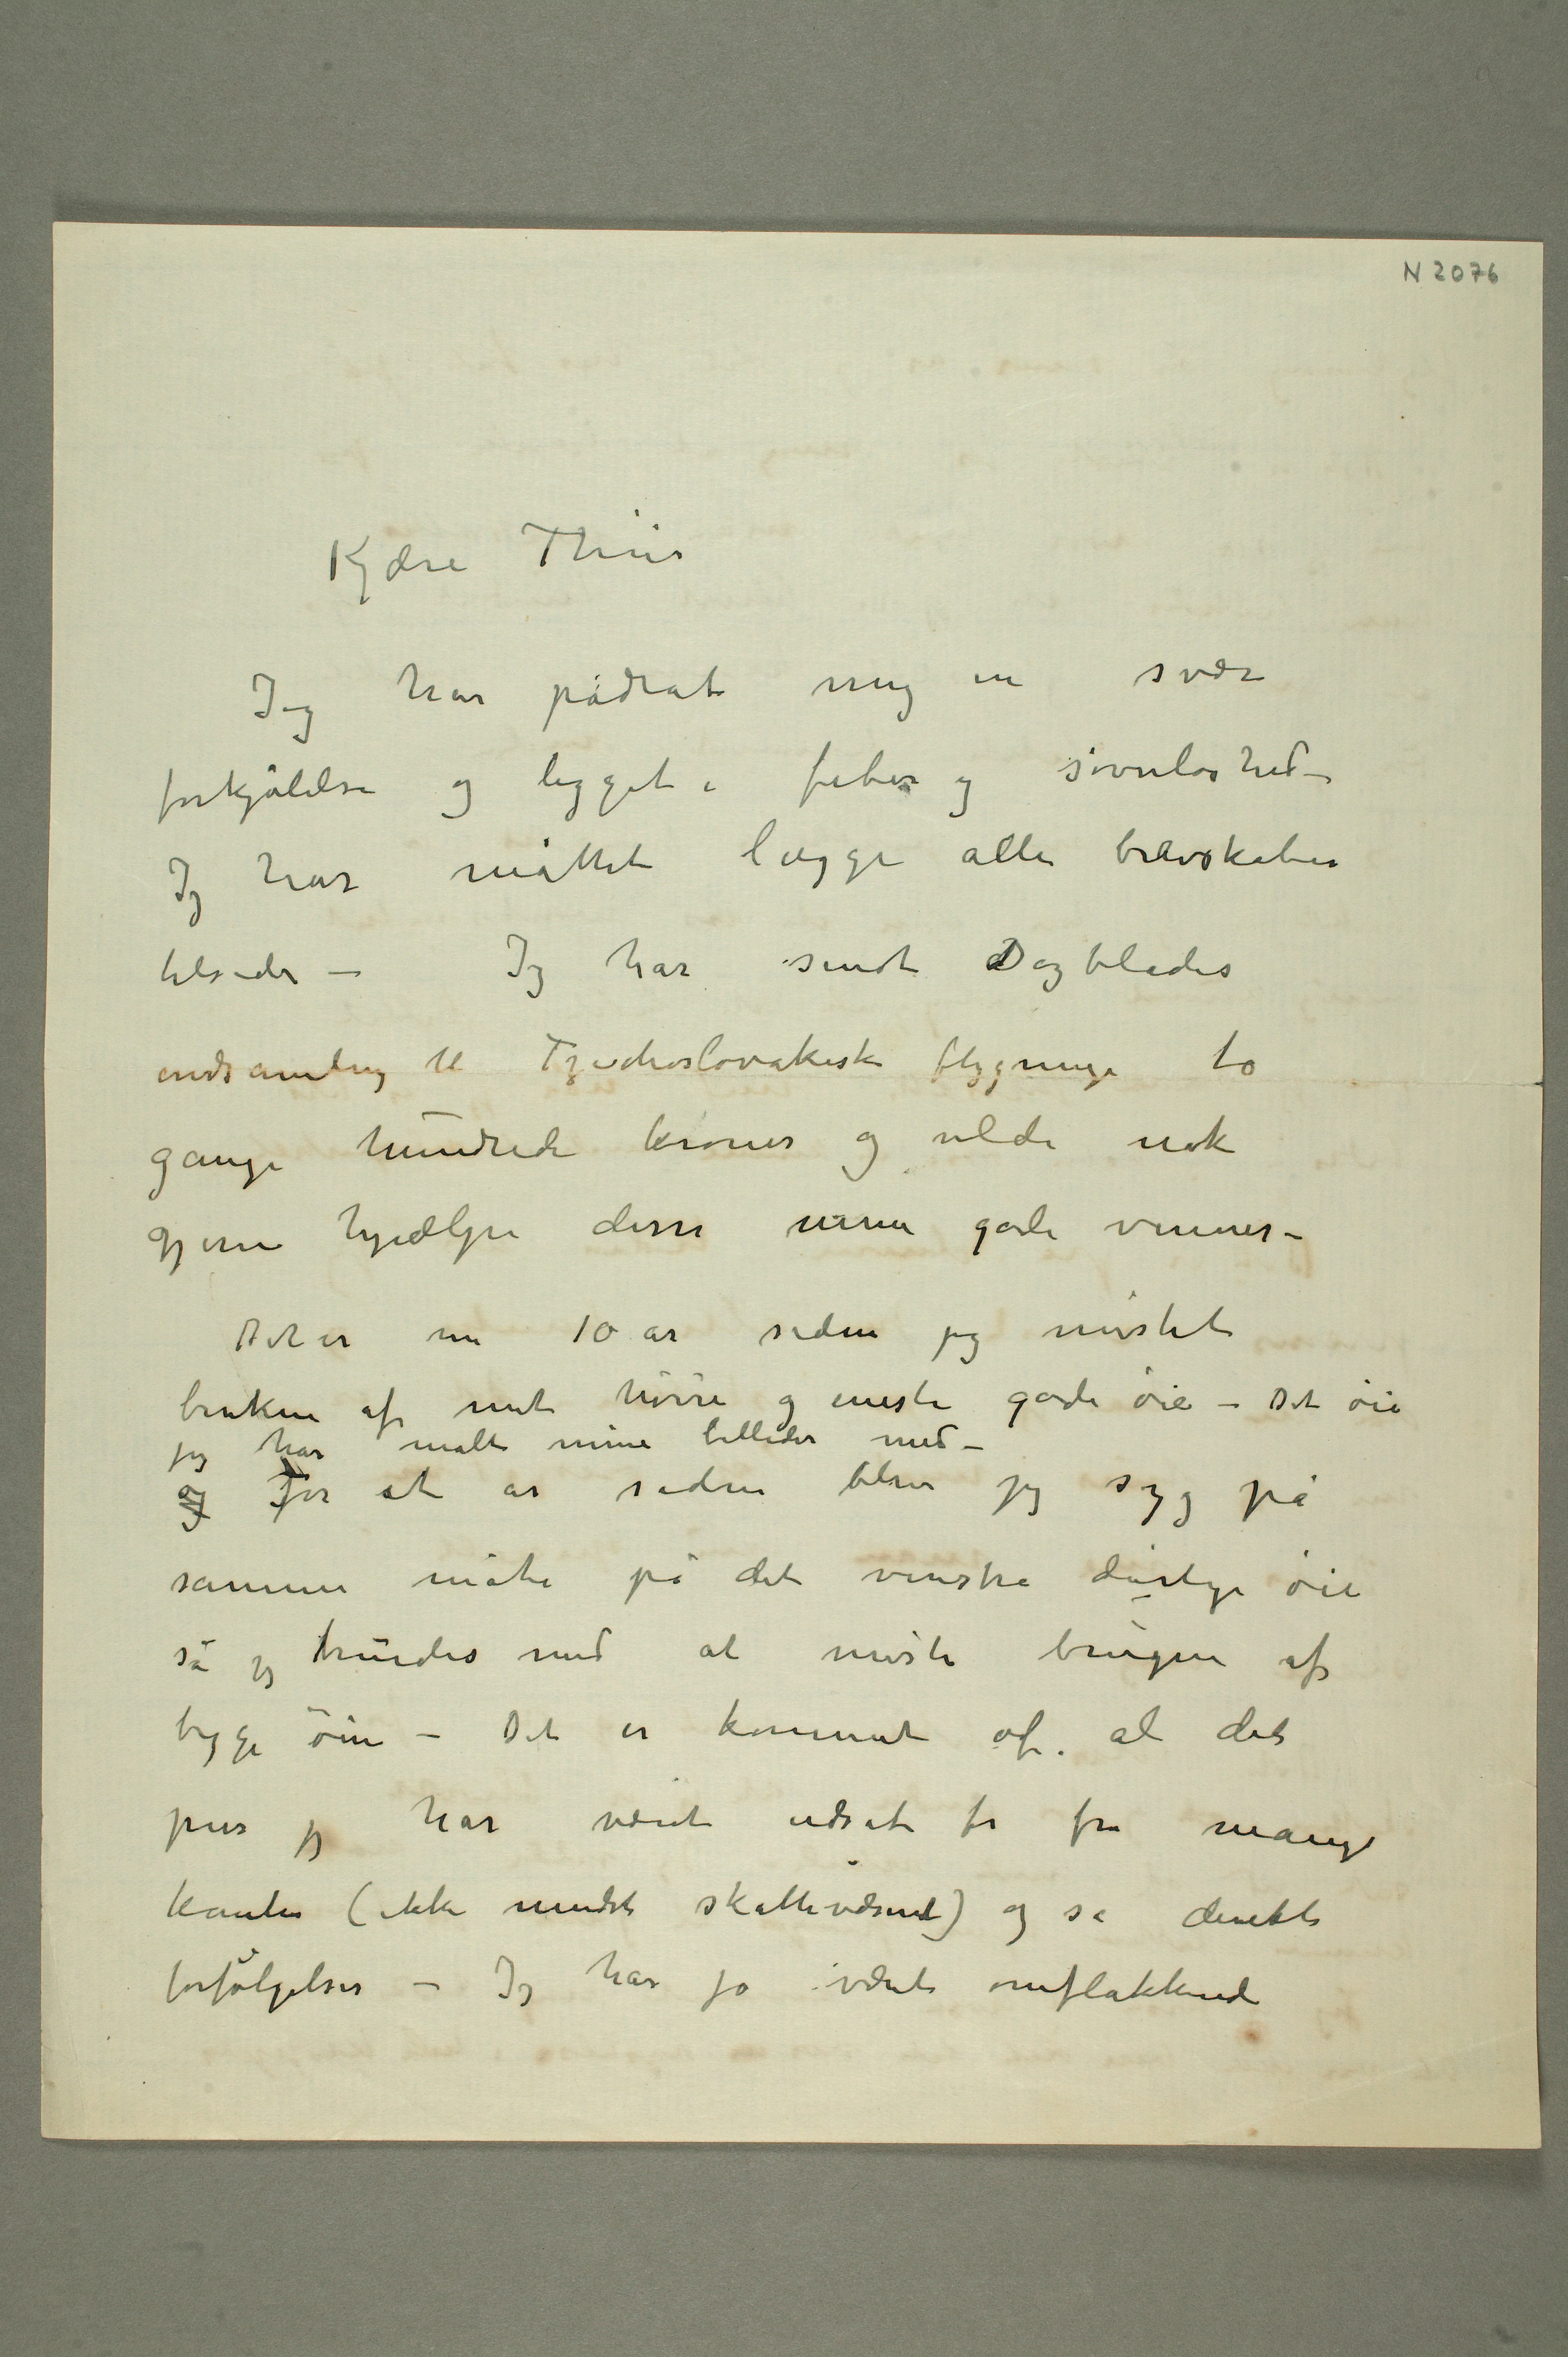 N 2076
Kjære Thiis
Jeg har pådrat mig en svær
forkjølelse og ligget i feber og søvnløshed –
Jeg har måttet lægge alle brevskaber
tilside – Jeg har sendt Dagblades
indsamling til Tzechoslovakiske flygninge to
gange hundrede kroner og vilde nok
gjerne hjælpe disse mine gode venner –
Det er nu 10 år siden jeg mistet
bruken af mit høire og eneste gode øie – Det øie
jeg har malt mine billeder med –
og For et år siden blev jeg syg på
samme måte på det venstre dårlige øie
så jeg truedes med at miste brugen af
begge øine – Det er kommet af al det
pres jeg har været udsat for fra mange
kanter (ikke mindst skattevæsenet) og så direkte
forfølgelser – Jeg har jo været omflakkende